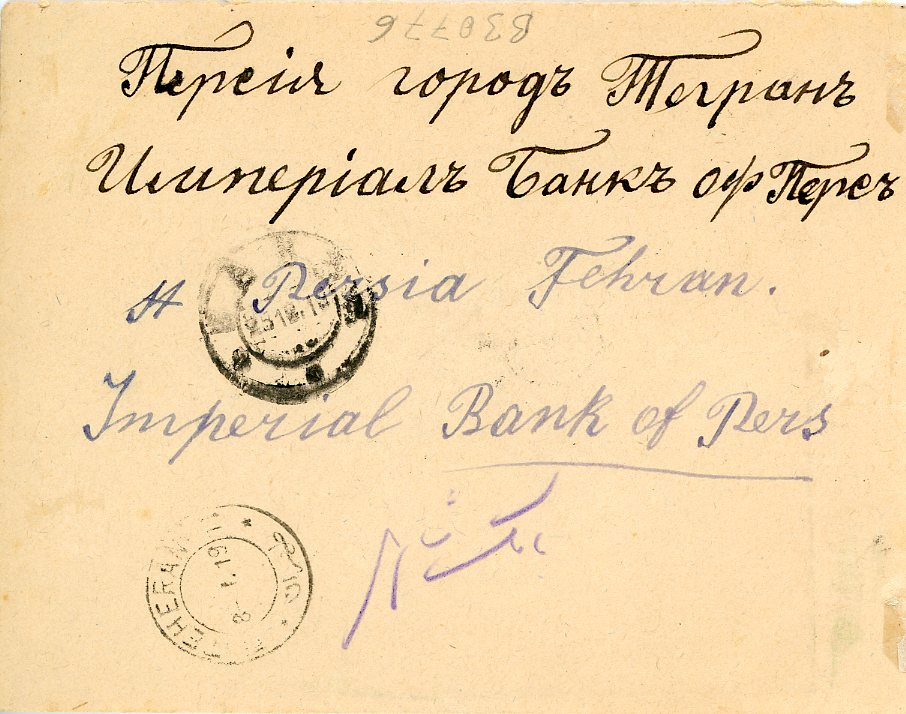 B30776
Персія городъ Тегранъ
Имперіалъ Банкъ оф Персъ
Persia Tehran.
Imperial Bank of Pers
TEHERAN